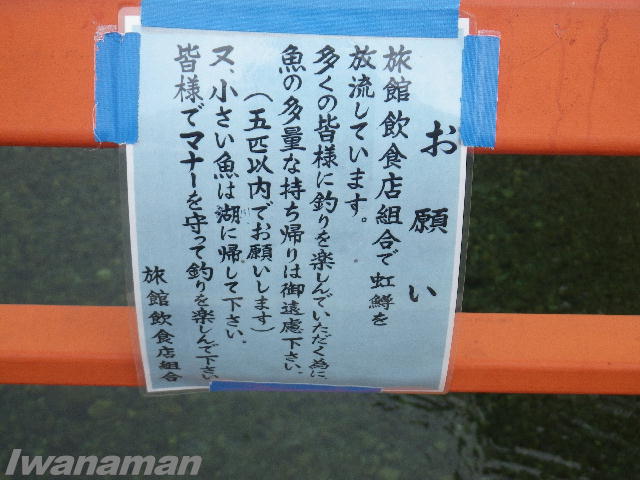 お願い
旅館飲食店組合で虹鱒を
放流しています。
多くの皆様に釣りを楽しんでいただく為に、
魚の多量な持ち帰りは御遠慮下さい。
（五匹以内でお願いします）
又、小さい魚は湖に帰して下さい。
皆様でマナーを守って釣りを楽しんで下さい
旅館飲食店組合
Iwanaman